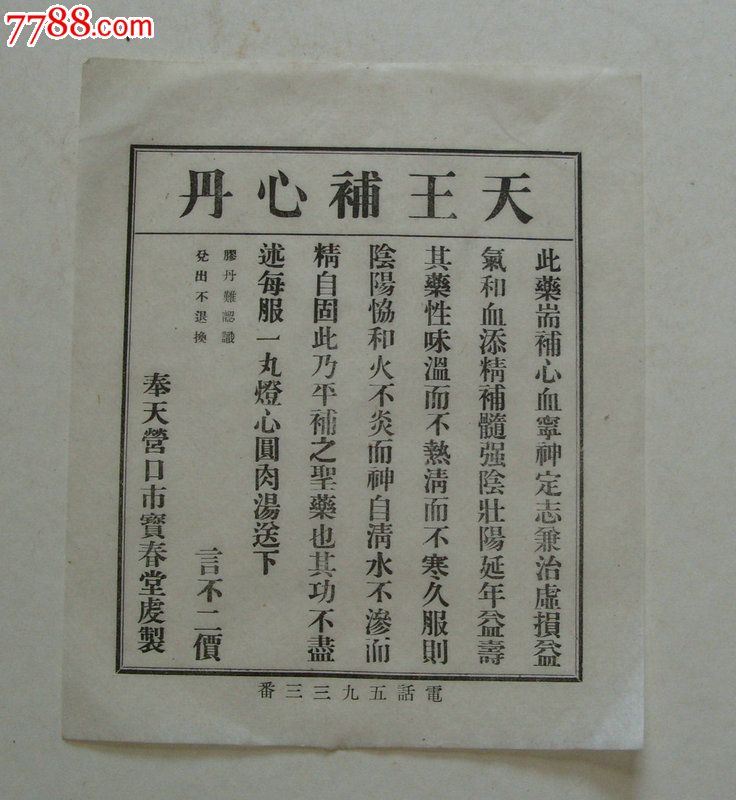 7788.com
天王補心丹
此藥耑補心血寧神定志兼治虛損益
氣和血添精補髓强陰壯陽延年益壽
其藥性味溫而不熱淸而不寒久服則
陰陽恊和火不炎而神自淸水不滲而
精自固此乃平補之聖藥也其功不盡
述每服一丸燈心圓肉湯送下
膠丹難認識
兌出不退換
言不二價
奉天營口市寶春堂虔製
電話五九三三番